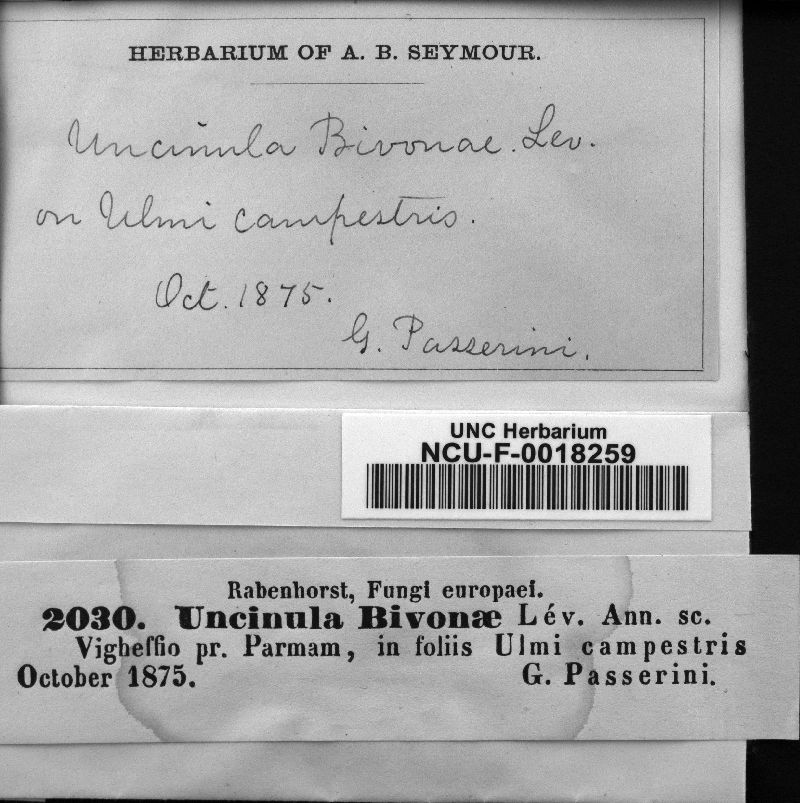 HERBARIUM OF A. B. SEYMOUR.
Uncinula Bivonae. Lev.
on Ulmi campestris.
Oct. 1875.
G. Passerini.
UNC Herbarium
NCU-F-0018259
Rabenhorst, Fungi europaei.
2030. Uncinula Bivonæ Lév. Ann. sc.
Vigheffio pr. Parmam, in foliis Ulmi campestris
October 1875. G. Passerini.